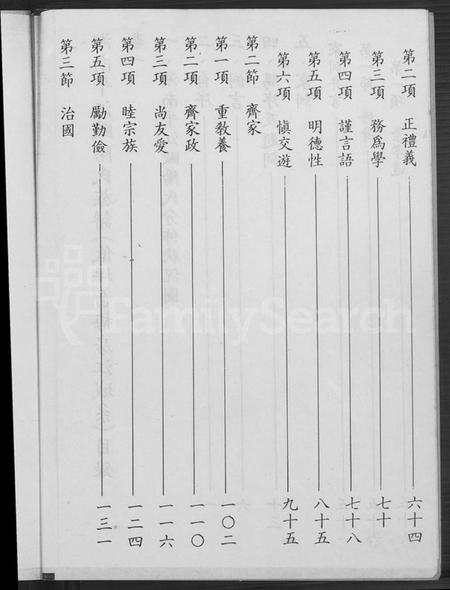 第二項 正禮義 六十四
第三項 務爲學 七十
第四項 謹言語 七十八
第五項 明德性 八十五
第六項 慎交遊 九十五
第二節 齊家
第一項 重教養 一〇二
第二項 齊家政 一一〇
第三項 尚友愛 一一六
第四項 睦宗族 一二四
第五項 勵勤儉 一三一
第三節 治國
FamilySearch